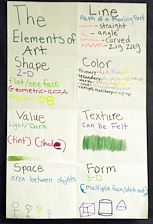 The
Elements of
Art
Line
Path of a Moving Point
- straight
- angle
- curved
- zig zag
Shape
2-D
flat/one face
Geometric
Color
Primary:
Value
Light/Dark
(tint) (shade)
Texture
Can be Felt
Space
area between objects
Form
3-D
(multiple faces/stick out)